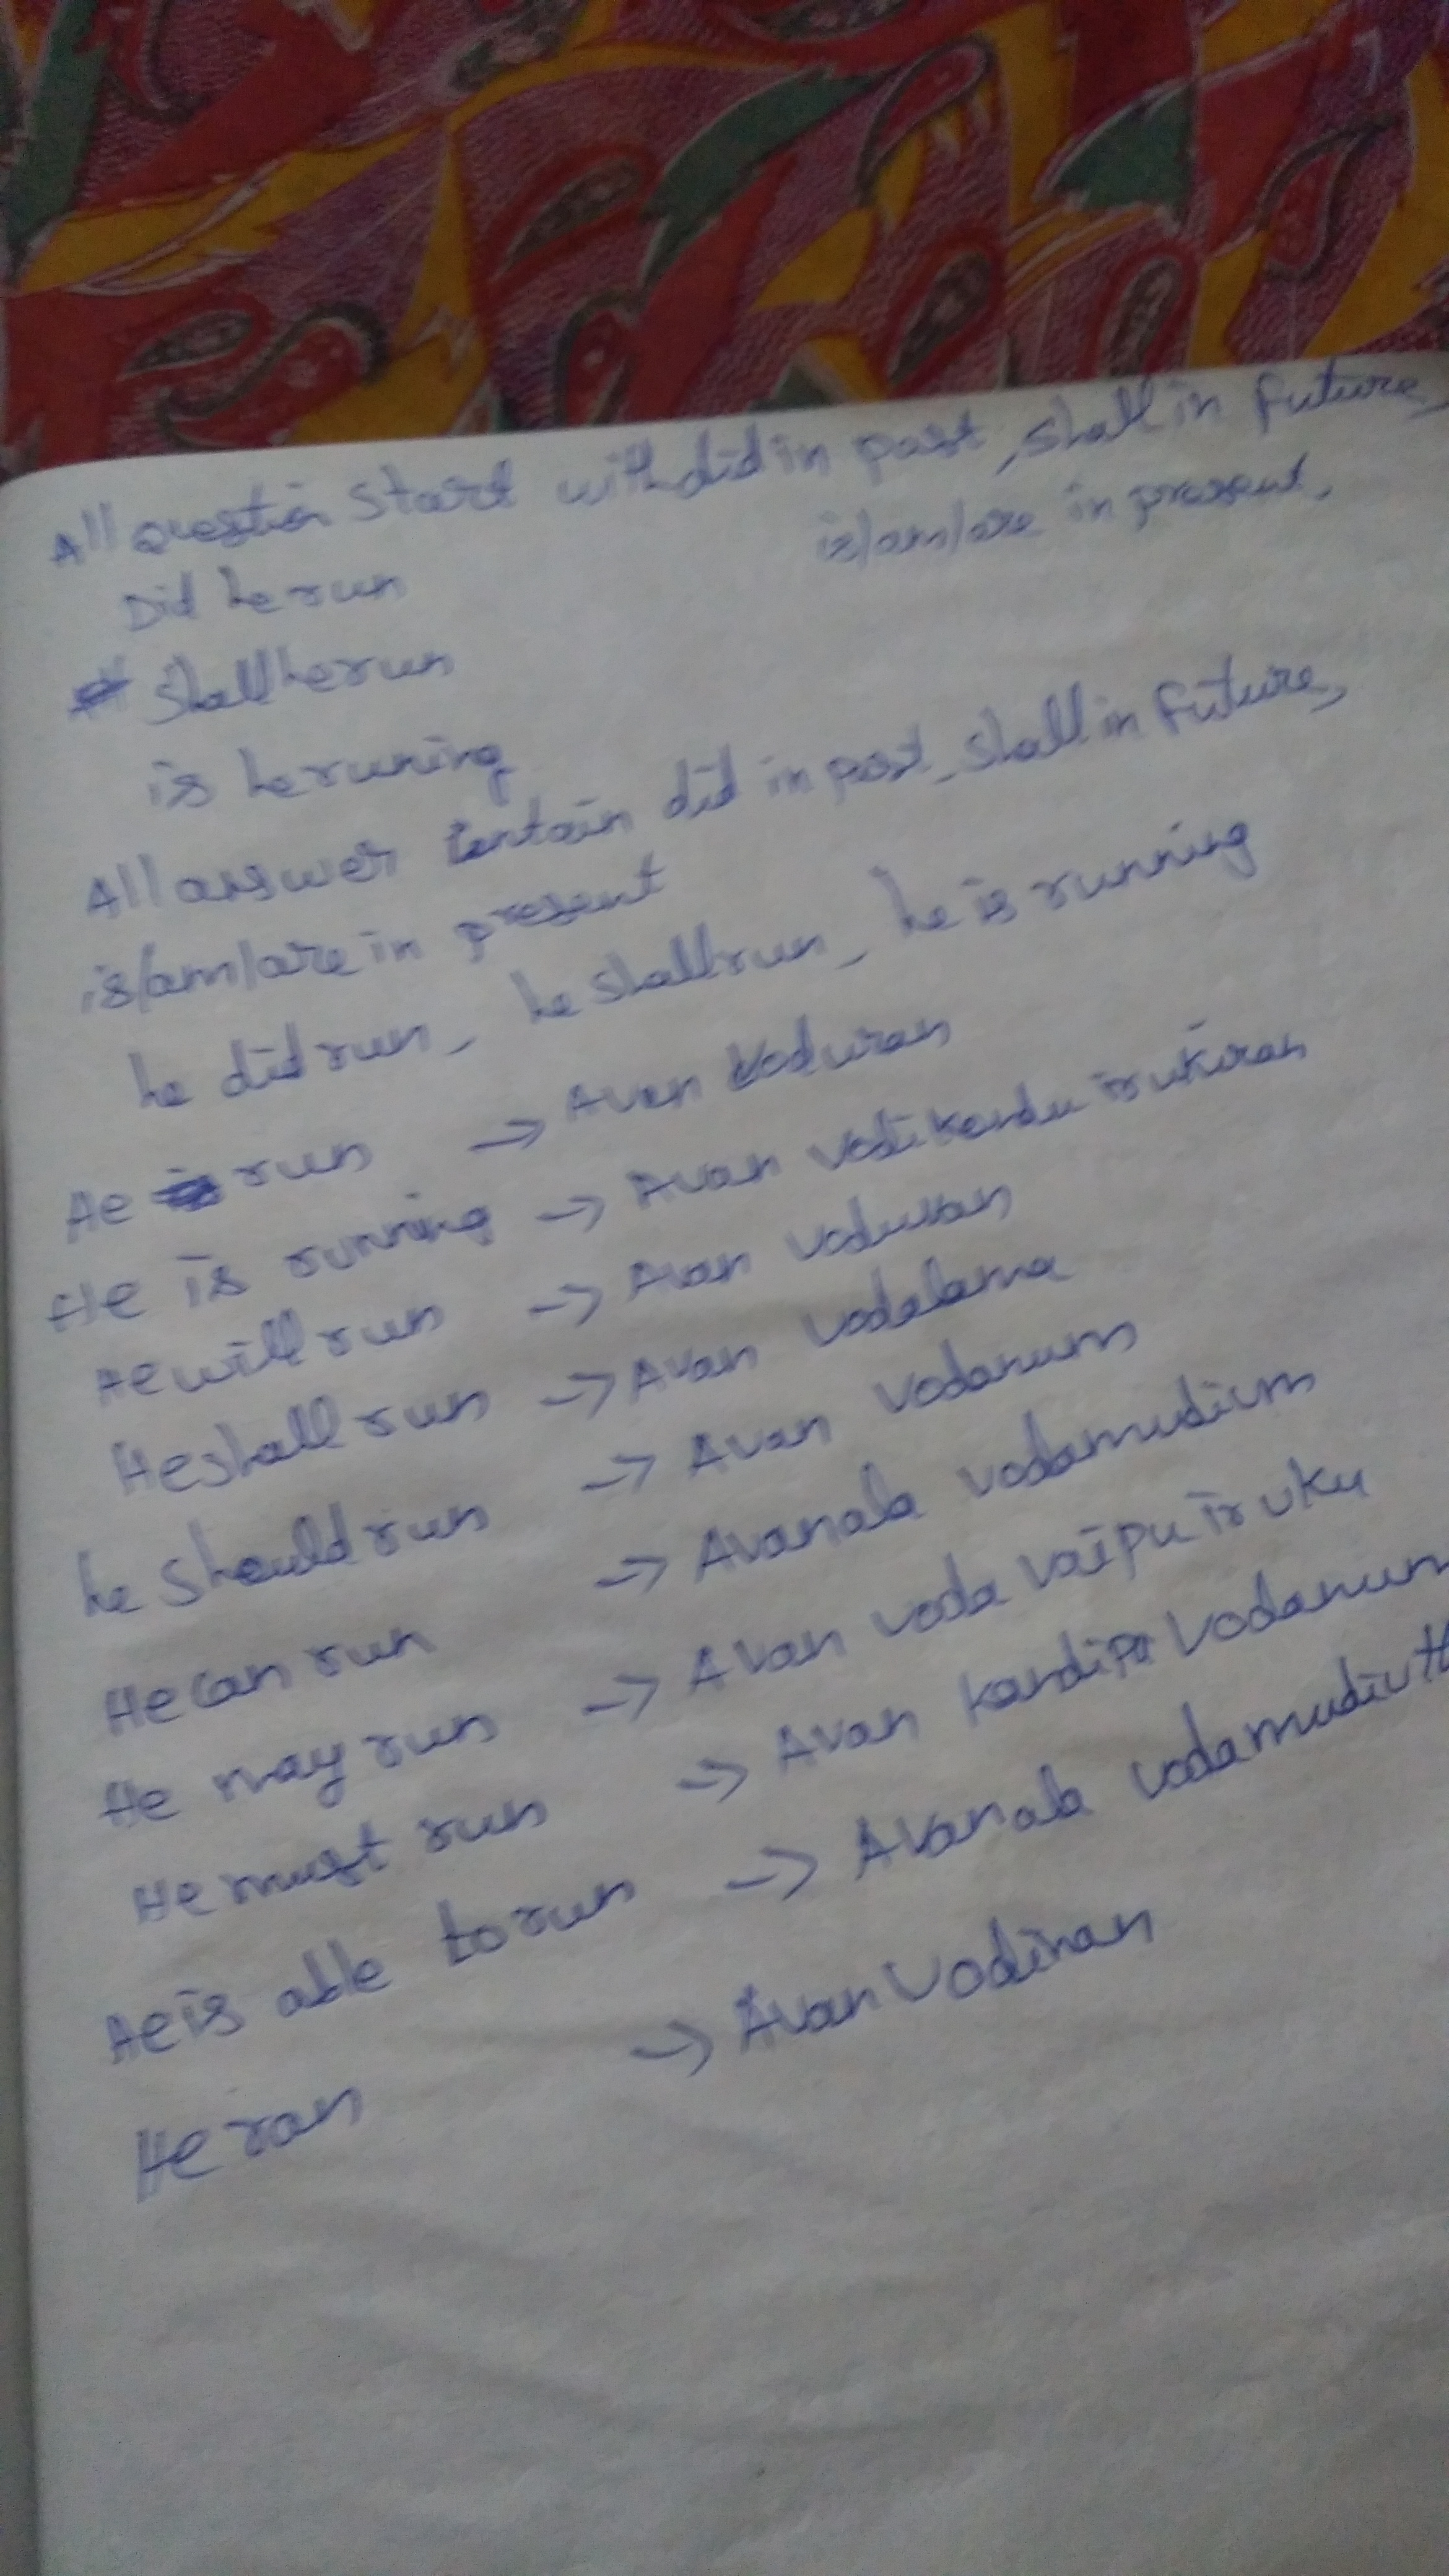 All question start with did in past, shall in future,
is/am/are in present,
Did he run
Shall he run
is he runing
All answer contain did in past, shall in future,
is/am/are in present
he did run, he shall run, he is running
He run -> Avan Voduran
He is running -> Avan Vodikondu irukiran
He will run -> Avan voduvan
He shall run -> Avan vodalama
he should run -> Avan Vodanum
He can run -> Avanala vodamudium
He may run -> Avan voda vaipu iruku
He must run -> Avan kandipa Vodanum
He is able to run -> Avanala
He ran -> Avan Vodinan